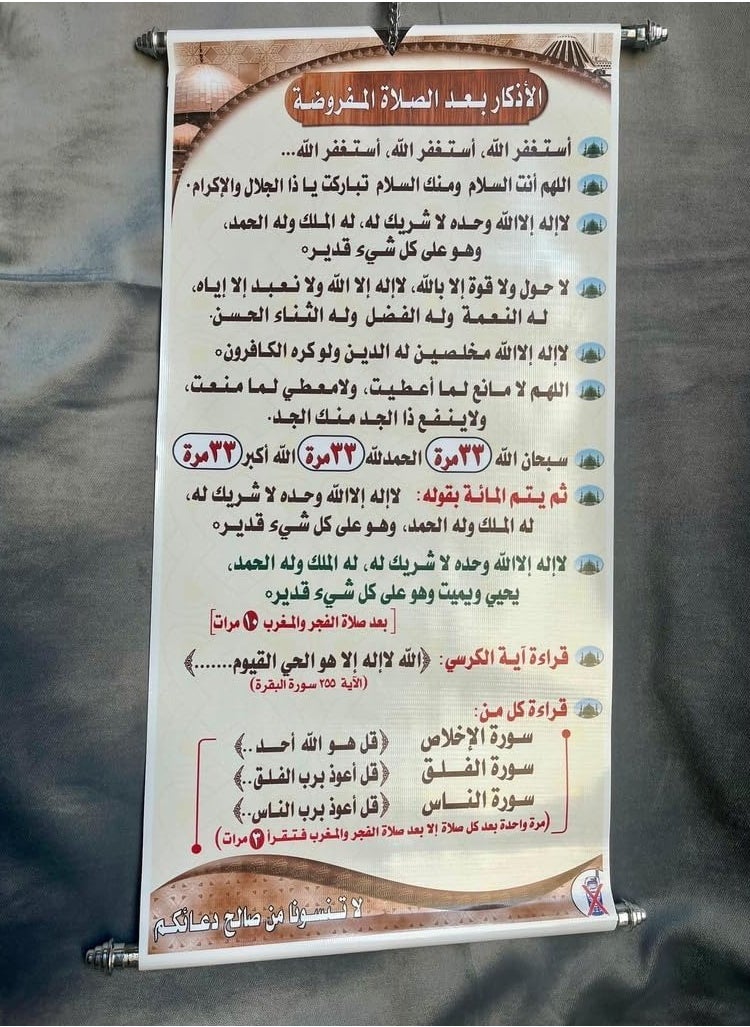 الأذكار بعد الصلاة المفروضة
أستغفر الله، أستغفر الله، أستغفر الله...
اللهم أنت السلام ومنك السلام تباركت يا ذا الجلال والإكرام.
لاإله إلاالله وحده لا شريك له، له الملك وله الحمد،
وهو على كل شيء قدير.
لا حول ولا قوة إلا بالله، لاإله إلا الله ولا نعبد إلا إياه،
له النعمة وله الفضل وله الثناء الحسن.
لاإله إلاالله مخلصين له الدين ولو كره الكافرون.
اللهم لا مانع لما أعطيت، ولامعطي لما منعت،
ولاينفع ذا الجد منك الجد.
سبحان الله ٣٣ مرة الحمدلله ٣٣ مرة الله أكبر ٣٣ مرة
ثم يتم المائة بقوله: لاإله إلاالله وحده لا شريك له،
له الملك وله الحمد، وهو على كل شيء قدير.
لاإله إلاالله وحده لا شريك له، له الملك وله الحمد،
يحيي ويميت وهو على كل شيء قدير.
[بعد صلاة الفجر والمغرب ١٠ مرات]
قراءة آية الكرسي: ﴿الله لاإله إلا هو الحي القيوم.......﴾
(الآية ٢٥٥ سورة البقرة)
قراءة كل من:
سورة الإخلاص ﴿قل هو الله أحد..﴾
سورة الفلق ﴿قل أعوذ برب الفلق..﴾
سورة الناس ﴿قل أعوذ برب الناس..﴾
(مرة واحدة بعد كل صلاة إلا بعد صلاة الفجر والمغرب فتقرأ ٣ مرات)
لا تنسونا من صالح دعائكم